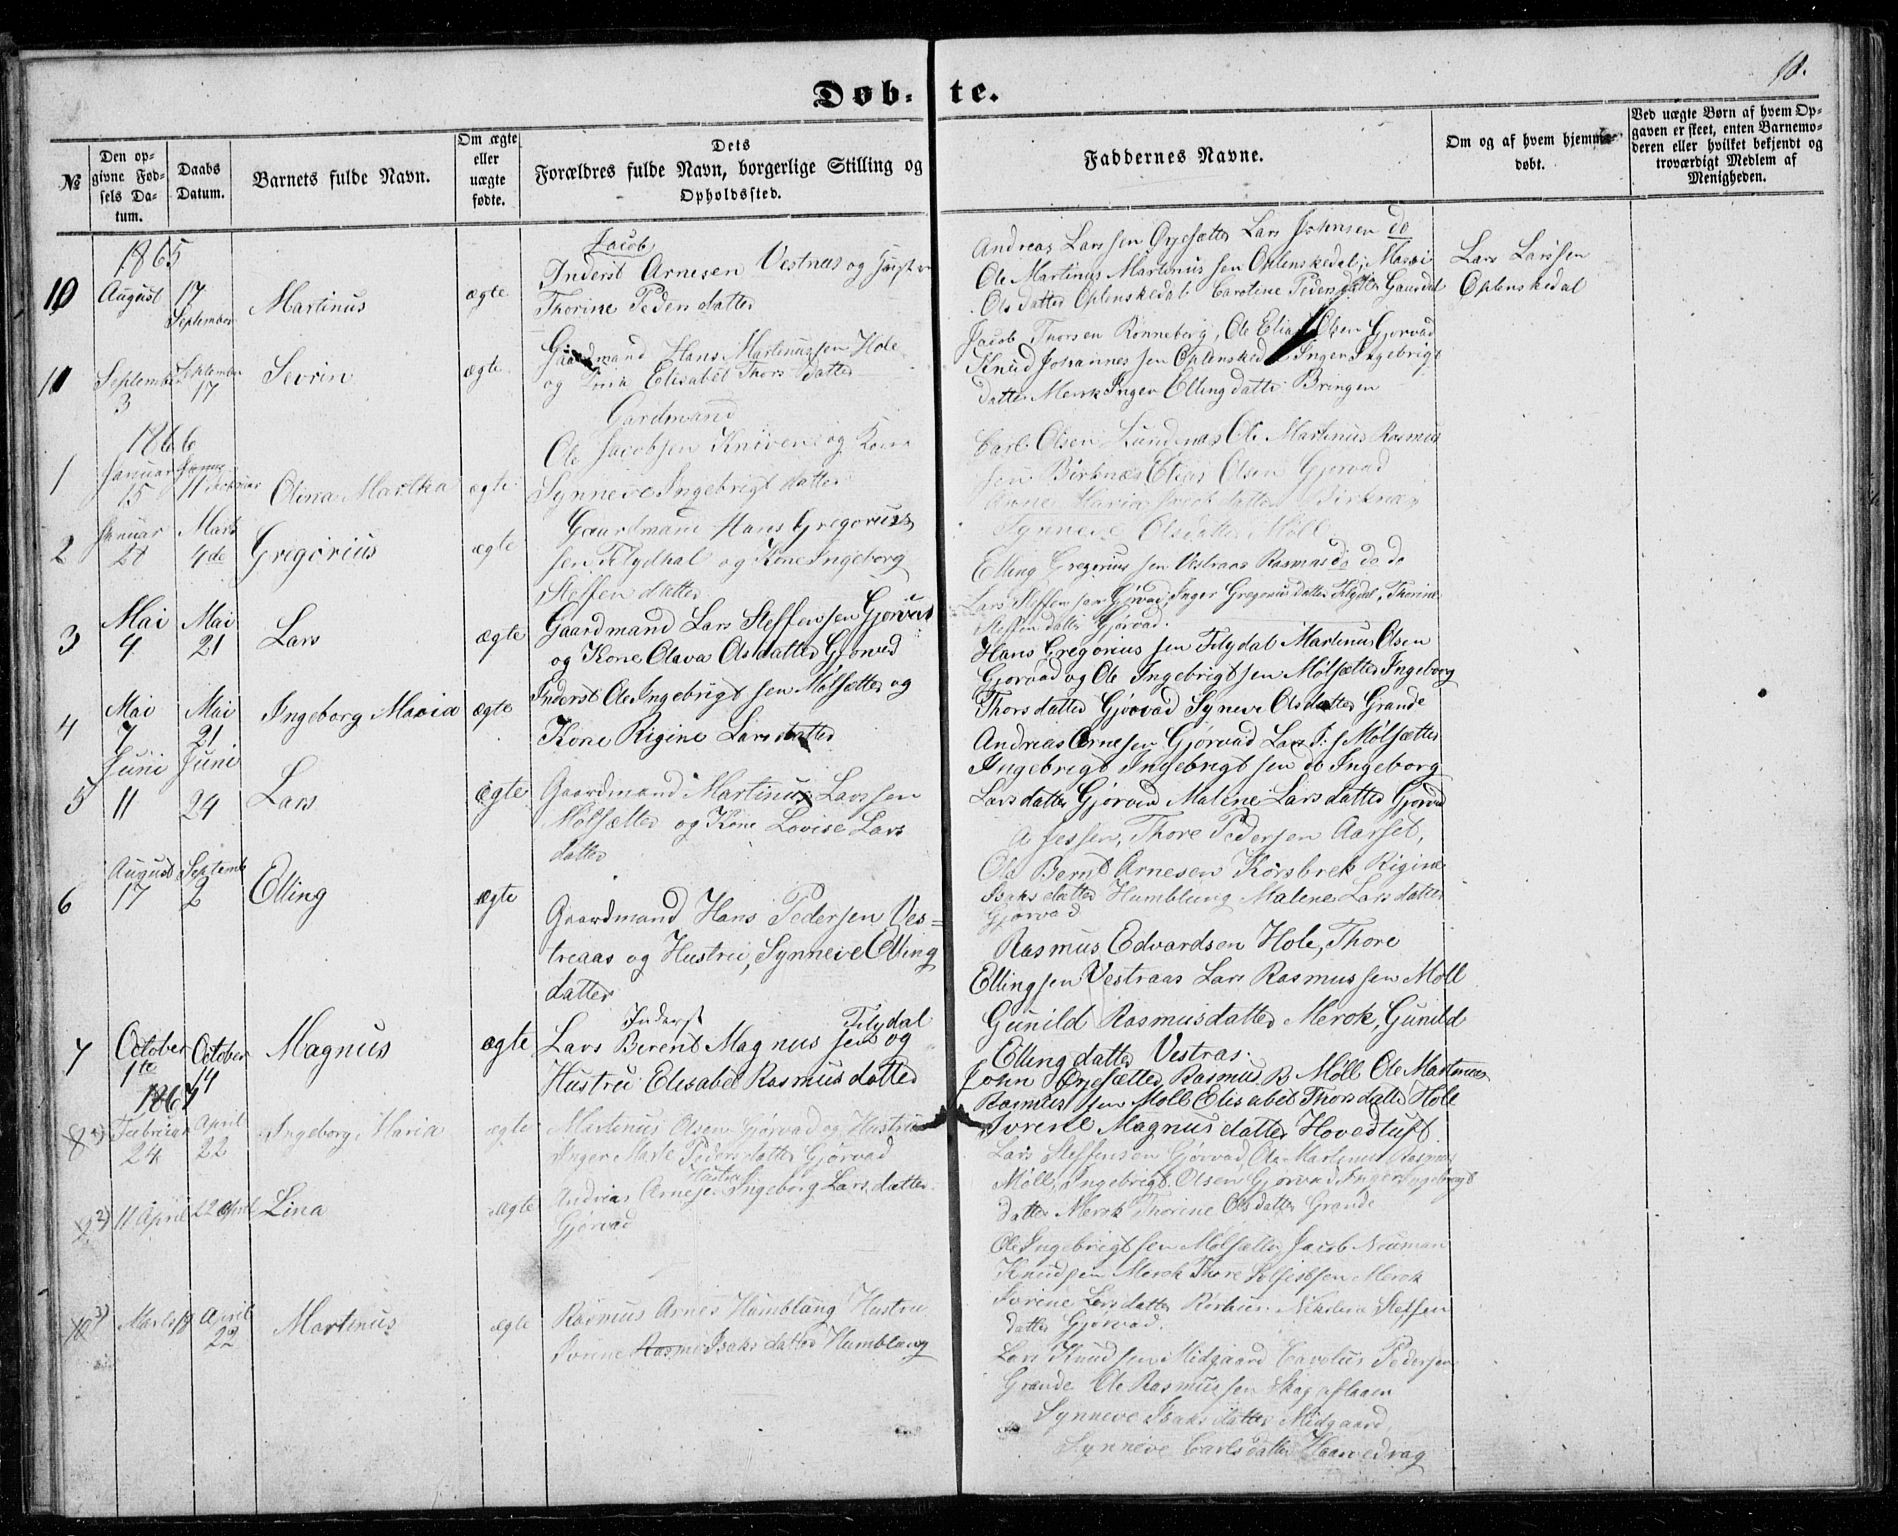 18.
Døb-te.
№
Den op-
givne Fød-
sels Da-
tum.
Daabs
Datum.
Barnets fulde Navn.
Om ægte
eller
uægte
fødte.
Dets
Forældres fulde Navn, borgerlige Stilling og
Opholdssted.
Faddernes Navne.
Om og af hvem hjemme-
døbt.
Ved uægte Børn af hvem Op-
gaven er skeet, enten Barnemo-
deren eller hvilket bekjendt og
troværdigt Medlem af
Menigheden.
1865
10 August 17 September Martinus ægte
Jacob
Inderst Arnesen Vestnes og
Thorine Peders datter
Andreas Lars sen Øyesætter Lars Johnsen do
Ole Martinus Martinus sen Oplenskedal, Mari
Ols datter Oplenskedal Caroline Peders datter
Lars Larssen
Oplenskedal
11 September 3 September 17 Sevrin ægte
Gaardmand Hans Martinus sen Hole
og Elisabet Thors datter
Jacob Thorsen Rønneberg, Ole Elias Olsen Gjørvad
Knud Johannes sen Inger Ingebrigt
datter Merok Inger Elling datter Bringen
1866
1 Januar 15 11 Olina Martha ægte
Gardmand
Ole Jacobsen Knivene og Kone
Synneve Ingebrigt datter
Carl Olsen Lundenæs Ole Martinus Rasmus
sen Birknæs Elias Olsen Gjørvad
Anne Maria Jacob datter Birknæs
Synneve Olsdatter Møll
2 Januar 28 Marts 4de Gregorius ægte
Gaardmand Hans Gregorius
sen Flydhal og Kone Ingeborg
Steffen datter
Elling Gregorius sen Vestraas Rasmus do do do
Lars Steffen sen Gjørvad, Inger Gregorius datter Flydal, Thorine
Steffen datter Gjørvad.
3 Mai 4 Mai 21 Lars ægte
Gaardmand Lars Steffensen Gjørvad
og Kone Olava Olsdatter Gjørvad
Hans Gregorius sen Flydal Martinus Olsen
Gjørvad og Ole Ingebrigt sen Mølsætter Ingeborg
Thors datter Gjørvad Syneve Ols datter Grande
4 Mai 7 Mai 21 Ingeborg Maria ægte
Inderst Ole Ingebrigt sen Mølsætter og
Kone Rigine Lars datter
Andreas Arnesen Gjørvad Lars I. s Mølsætter
Ingebrigt Ingebrigt sen do Ingeborg
Lars datter Gjørvad Malene Lars datter Gjørvad
5 Juni 11 Juni 24 Lars ægte
Gaardmand Martinus Larssen
Mølsætter og Kone Lovise Lars
datter
Thore Pedersen Aarset,
Ole Bernt Arnesen Korsbrek Rigine
Isaks datter Humblung Malene Lars datter
Gjørvad
6 August 17 Septemb 2 Elling ægte
Gaardmand Hans Pedersen Ves-
traas og Hustru, Synneve Elling
datter
Rasmus Edvardsen Hole, Thore
Ellingsen Vestraas Lars Rasmussen Møll
Gunild Rasmusdatter Merok, Gunild
Elling datter Vestras.
7 October 1te October 14 Magnus ægte
Inderst Flydal
Lars Berent Magnus sen og
Hustru Elisabet Rasmus datter
John Øyesætter Rasmus B Møll Ole Martinus
Rasmus sen Møll Elisabet Thors datter Hole
Jorene Magnus datter Hovedtuft
1867
8 1) Februar 24 April 22 Ingeborg Maria ægte
Martinus Olsen Gjørvad og Hustru
Inger Marte Peders datter Gjørvad
Lars Steffensen Gjørvad, Ole Martinus Rasmus
Møll, Ingebrigt Olsen Gjørvad Inger Ingebrigt
datter Merok Thorine Ols datter Grande
9 2) 11 April 22 April Lina ægte
Hustru
Andreas Arnesen Ingeborg Lars datter
Gjørvad
Ole Ingebrigt sen Mølsætter Jacob Nouman
Knudsen Merok Thore Merok
Jorine Lars datter Nikolina Steffen
datter Gjørvad.
10 3) Marts 18 April 22 Martinus ægte
Rasmus Arnes Humblung Hustru
Jorine Isaks datter Humblung
Lars Knudsen Midgaard Carolus Pedersen
Grande Ole Rasmus sen
Synneve Isaks datter Midgaard
Synneve Carls datter